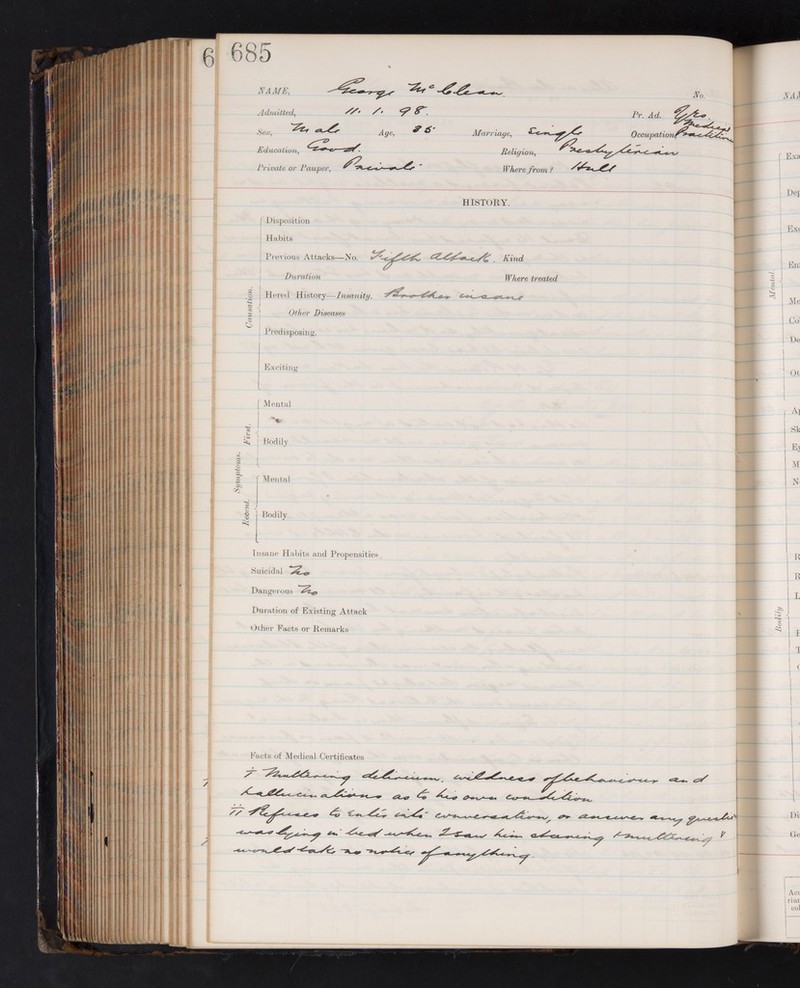 6 685
NAME, George McClean No.
Admitted, 11. 1. 98. Pr. Ad. Yes
Sex, Male Age, 35 Marriage, Single Occupation Medical Practitioner
Education, Good. Religion, Presbyterian
Private or Pauper, Private Where from? Hull
HISTORY.
Disposition
Habits
Previous Attacks—No. Fifth attack. Kind
Duration Where treated
Hered History—Insanity. Brother insane
Other Diseases
Causation.
Predisposing.
Exciting
Mental
First.
Bodily
Symptoms.
Mental
Recent.
Bodily
Insane Habits and Propensities
Suicidal No
Dangerous No
Duration of Existing Attack
Other Facts or Remarks
Facts of Medical Certificates
I Muttering delirium, wildness of behaviour and
hallucinations as to his own condition
II Refuses to enter into conversation, or answer any questio
was lying in bed when I saw him & muttering &
would take no notice of anything.
Mental.
Bodily